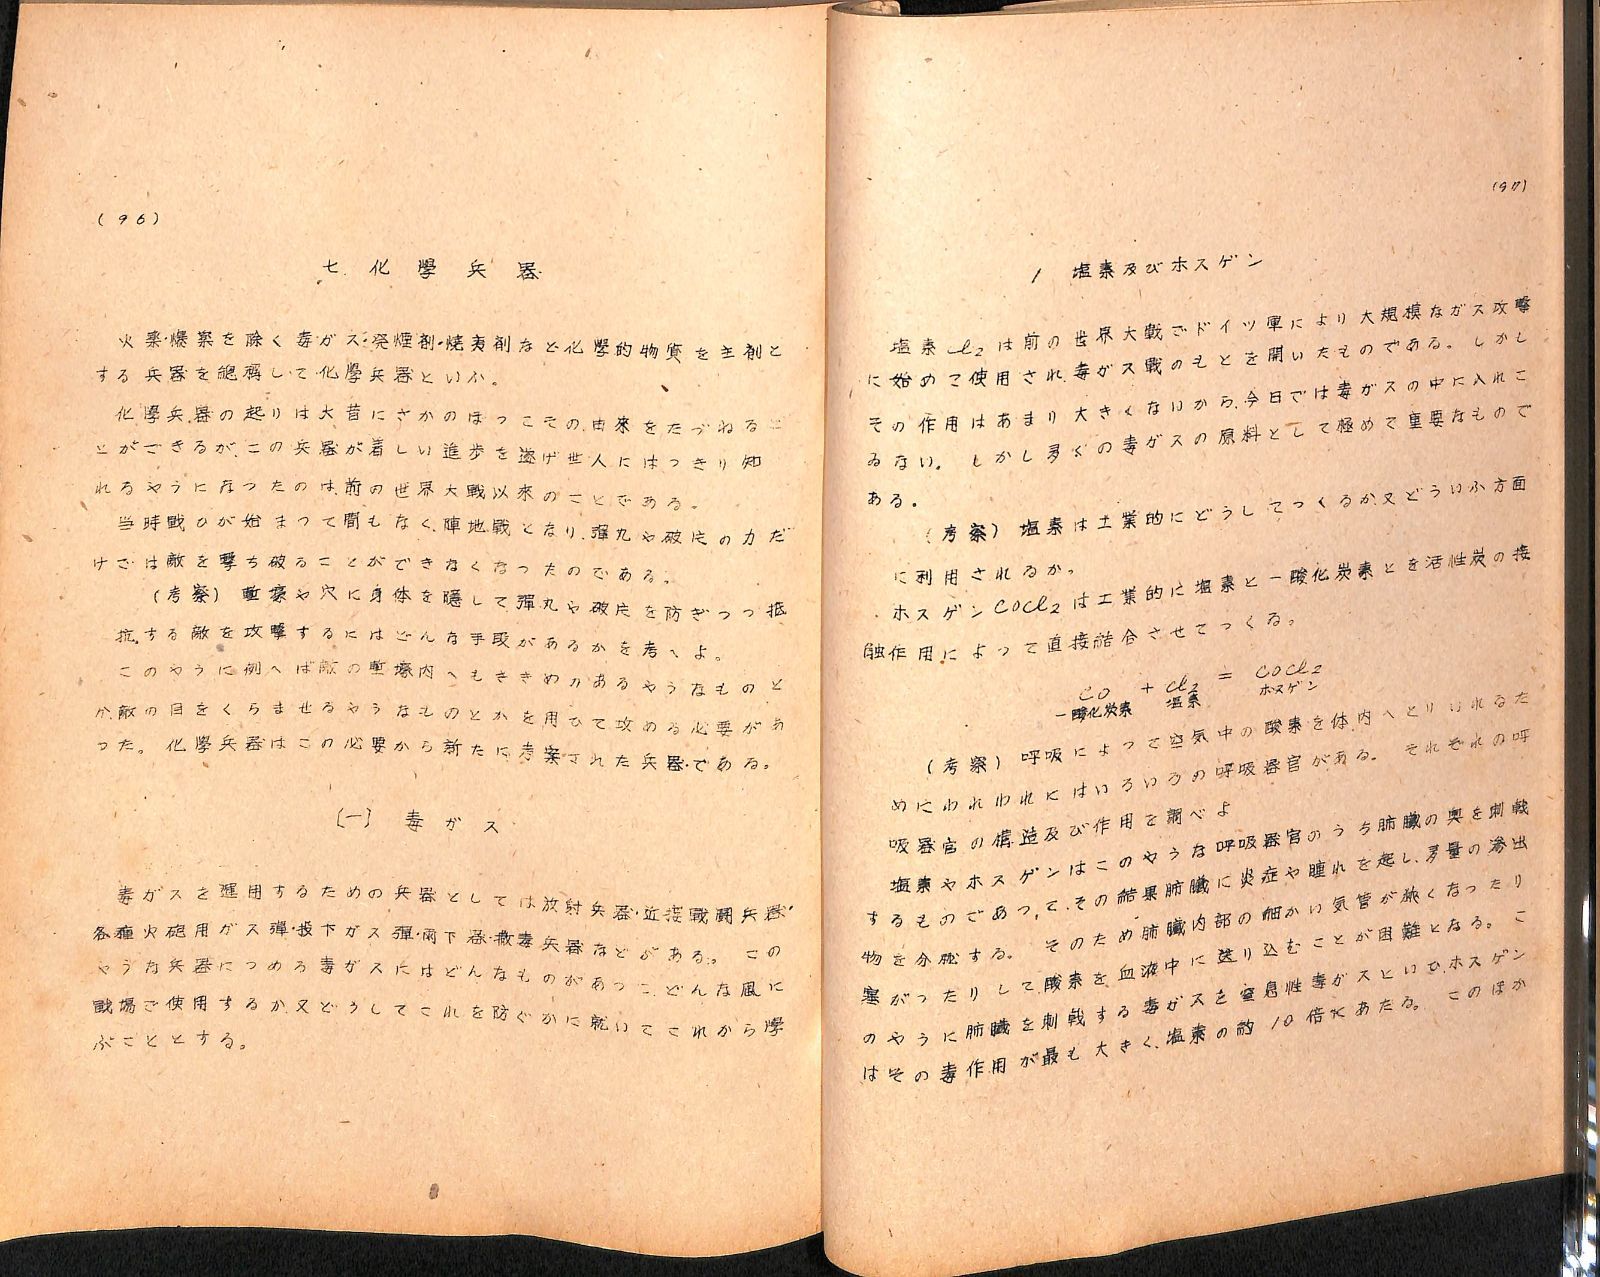 (96)
七.化學兵器
火薬・爆薬を除く毒ガス・発煙剤・焼夷剤など化學的物質を主剤と
する兵器を總稱して化學兵器といふ。
化學兵器の起りは大昔にさかのぼつてその由來をたづねるこ
とができるが、この兵器が著しい進歩を遂げ世人にはつきり知
れるやうになつたのは前の世界大戦以來のことである。
当時戦ひが始まつて間もなく、陣地戦となり、彈丸や破片の力だ
けでは敵を撃ち破ることができなくなつたのである。
(考察) 塹壕や穴に身体を隠して彈丸や破片を防ぎつつ抵
抗する敵を攻撃するにはどんな手段があるかを考へよ。
このやうに例へば敵の塹壕内へもききめがあるやうなものと
か、敵の目をくらませるやうなものとかを用ひて攻める必要があ
つた。化學兵器はこの必要から新たに考案された兵器である。
〔一〕 毒ガス
毒ガスを運用するための兵器としては放射兵器・近接戰闘兵器・
各種火砲用ガス彈・投下ガス彈・雨下器・撒毒兵器などがある。この
やうな兵器につめる毒ガスにはどんなものがあつて、どんな風に
戰場で使用するか、又どうしてこれを防ぐかに就いてこれから學
ぶこととする。
(97)
1 塩素及びホスゲン
塩素Cl2は前の世界大戰でドイツ軍により大規模なガス攻撃
に始めて使用され、毒ガス戰のもとを開いたものである。しかし
その作用はあまり大きくないから、今日では毒ガスの中に入れて
ゐない。しかし多くの毒ガスの原料として極めて重要なもので
ある。
(考察) 塩素は工業的にどうしてつくるか、又どういふ方面
に利用されるか。
ホスゲンCOCl2は工業的に塩素と一酸化炭素とを活性炭の接
触作用によつて直接結合させてつくる。
CO + Cl2 = COCl2
一酸化炭素 塩素 ホスゲン
(考察) 呼吸によつて空気中の酸素を体内へとりいれるた
めにわれわれにはいろいろの呼吸器官がある。それぞれの呼
吸器官の構造及び作用を調べよ
塩素やホスゲンはこのやうな呼吸器官のうち肺臓の奥を刺戟
するものであつて、その結果肺臓に炎症や腫れを起し、多量の滲出
物を分泌する。そのため肺臓内部の細かい気管が狭くなつたり
塞がつたりして、酸素を血液中に送り込むことが困難となる。こ
のやうに肺臓を刺戟する毒ガスを窒息性毒ガスといひ、ホスゲン
はその毒作用が最も大きく、塩素の約10倍にあたる。このほか